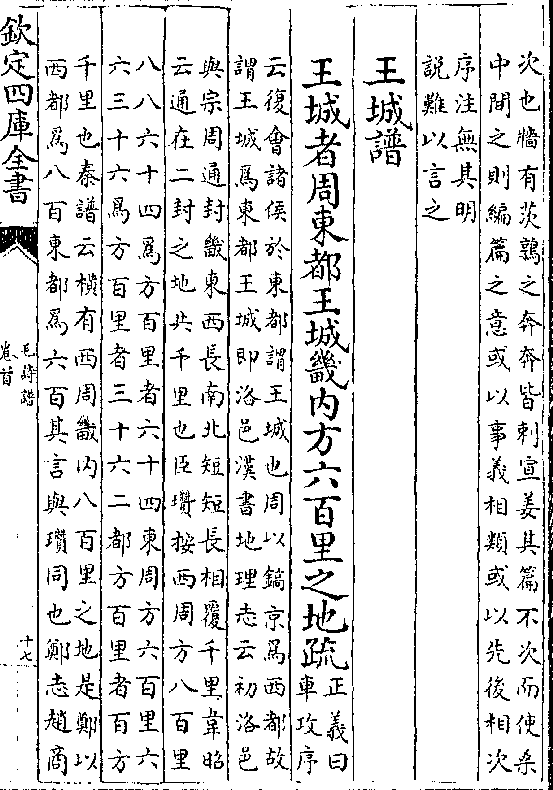 次也牆有茨鶉之奔奔皆刺宣姜其篇不次而使桑
中間之則編篇之意或以事義相類或以先後相次
序注無其明
說難以言之
王城譜
王城者周東都王城畿内方六百里之地疏
正義曰
車攻序
云復會諸侯於東都謂王城也周以鎬京爲西都故
謂王城爲東都王城即洛邑漢書地理志云初洛邑
與宗周通封畿東西長南北短短長相覆千里韋昭
云通在二封之地共千里也臣瓚按西周方八百里
八八六十四爲方百里者六十四東周方六百里六
六三十六爲方百里者三十六二都方百里者百方
千里也秦譜云横有西周畿内八百里之地是鄭以
西都爲八百東都爲六百其言與瓚同也鄭志趙商
欽定四庫全書
毛詩譜
卷首
十七